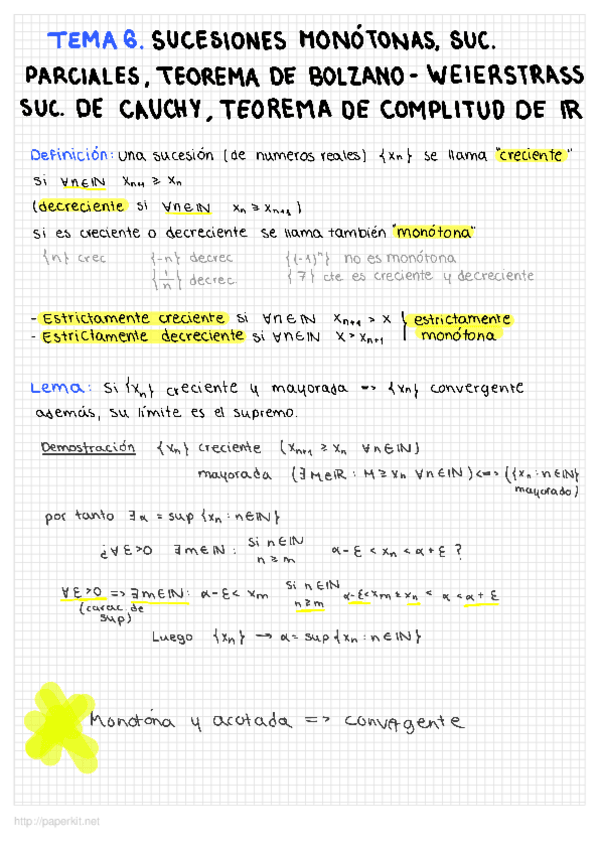 TEMA 6. SUCESIONES MONÓTONAS, SUC.
PARCIALES, TEOREMA DE BOLZANO - WEIERSTRASS
SUC. DE CAUCHY, TEOREMA DE COMPLITUD DE ℝ
Definición: Una sucesión (de numeros reales) {xn} se llama "creciente"
si ∀n∈ℕ xn+1 ≥ xn
(decreciente si ∀n∈ℕ xn ≥ xn+1)
si es creciente o decreciente se llama también "monótona"
{n} crec {-n} decrec {(-1)^n} no es monótona
{1/n} decrec {7} cte es creciente y decreciente
- Estrictamente creciente si ∀n∈ℕ xn+1 > x } estrictamente
- Estrictamente decreciente si ∀n∈ℕ x > xn+1 | monótona
Lema: si {xn} creciente y mayorada => {xn} convergente
además, su límite es el supremo.
Demostración {xn} creciente (xn+1 ≥ xn ∀n∈ℕ)
mayorada (∃M∈ℝ : M ≥ xn ∀n∈ℕ) <=> ({xn : n∈ℕ}
mayorado)
por tanto ∃α = sup {xn : n∈ℕ}
¿∀ε>0 ∃m∈ℕ : si n∈ℕ n ≥ m α-ε < xn < α+ε ?
∀ε>0 => ∃m∈ℕ: α-ε < xm si n∈ℕ n ≥ m α-ε < xm ≤ xn < α < α+ε
(carac. de
sup)
Luego {xn} → α = sup {xn : n∈ℕ}
Monótona y acotada => convergente
http://paperkit.net